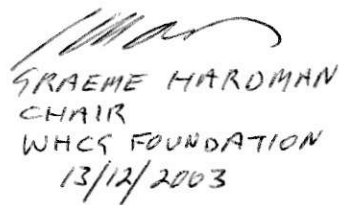 GRAEME HARDMAN
CHAIR
WHCG FOUNDATION
13/12/2003